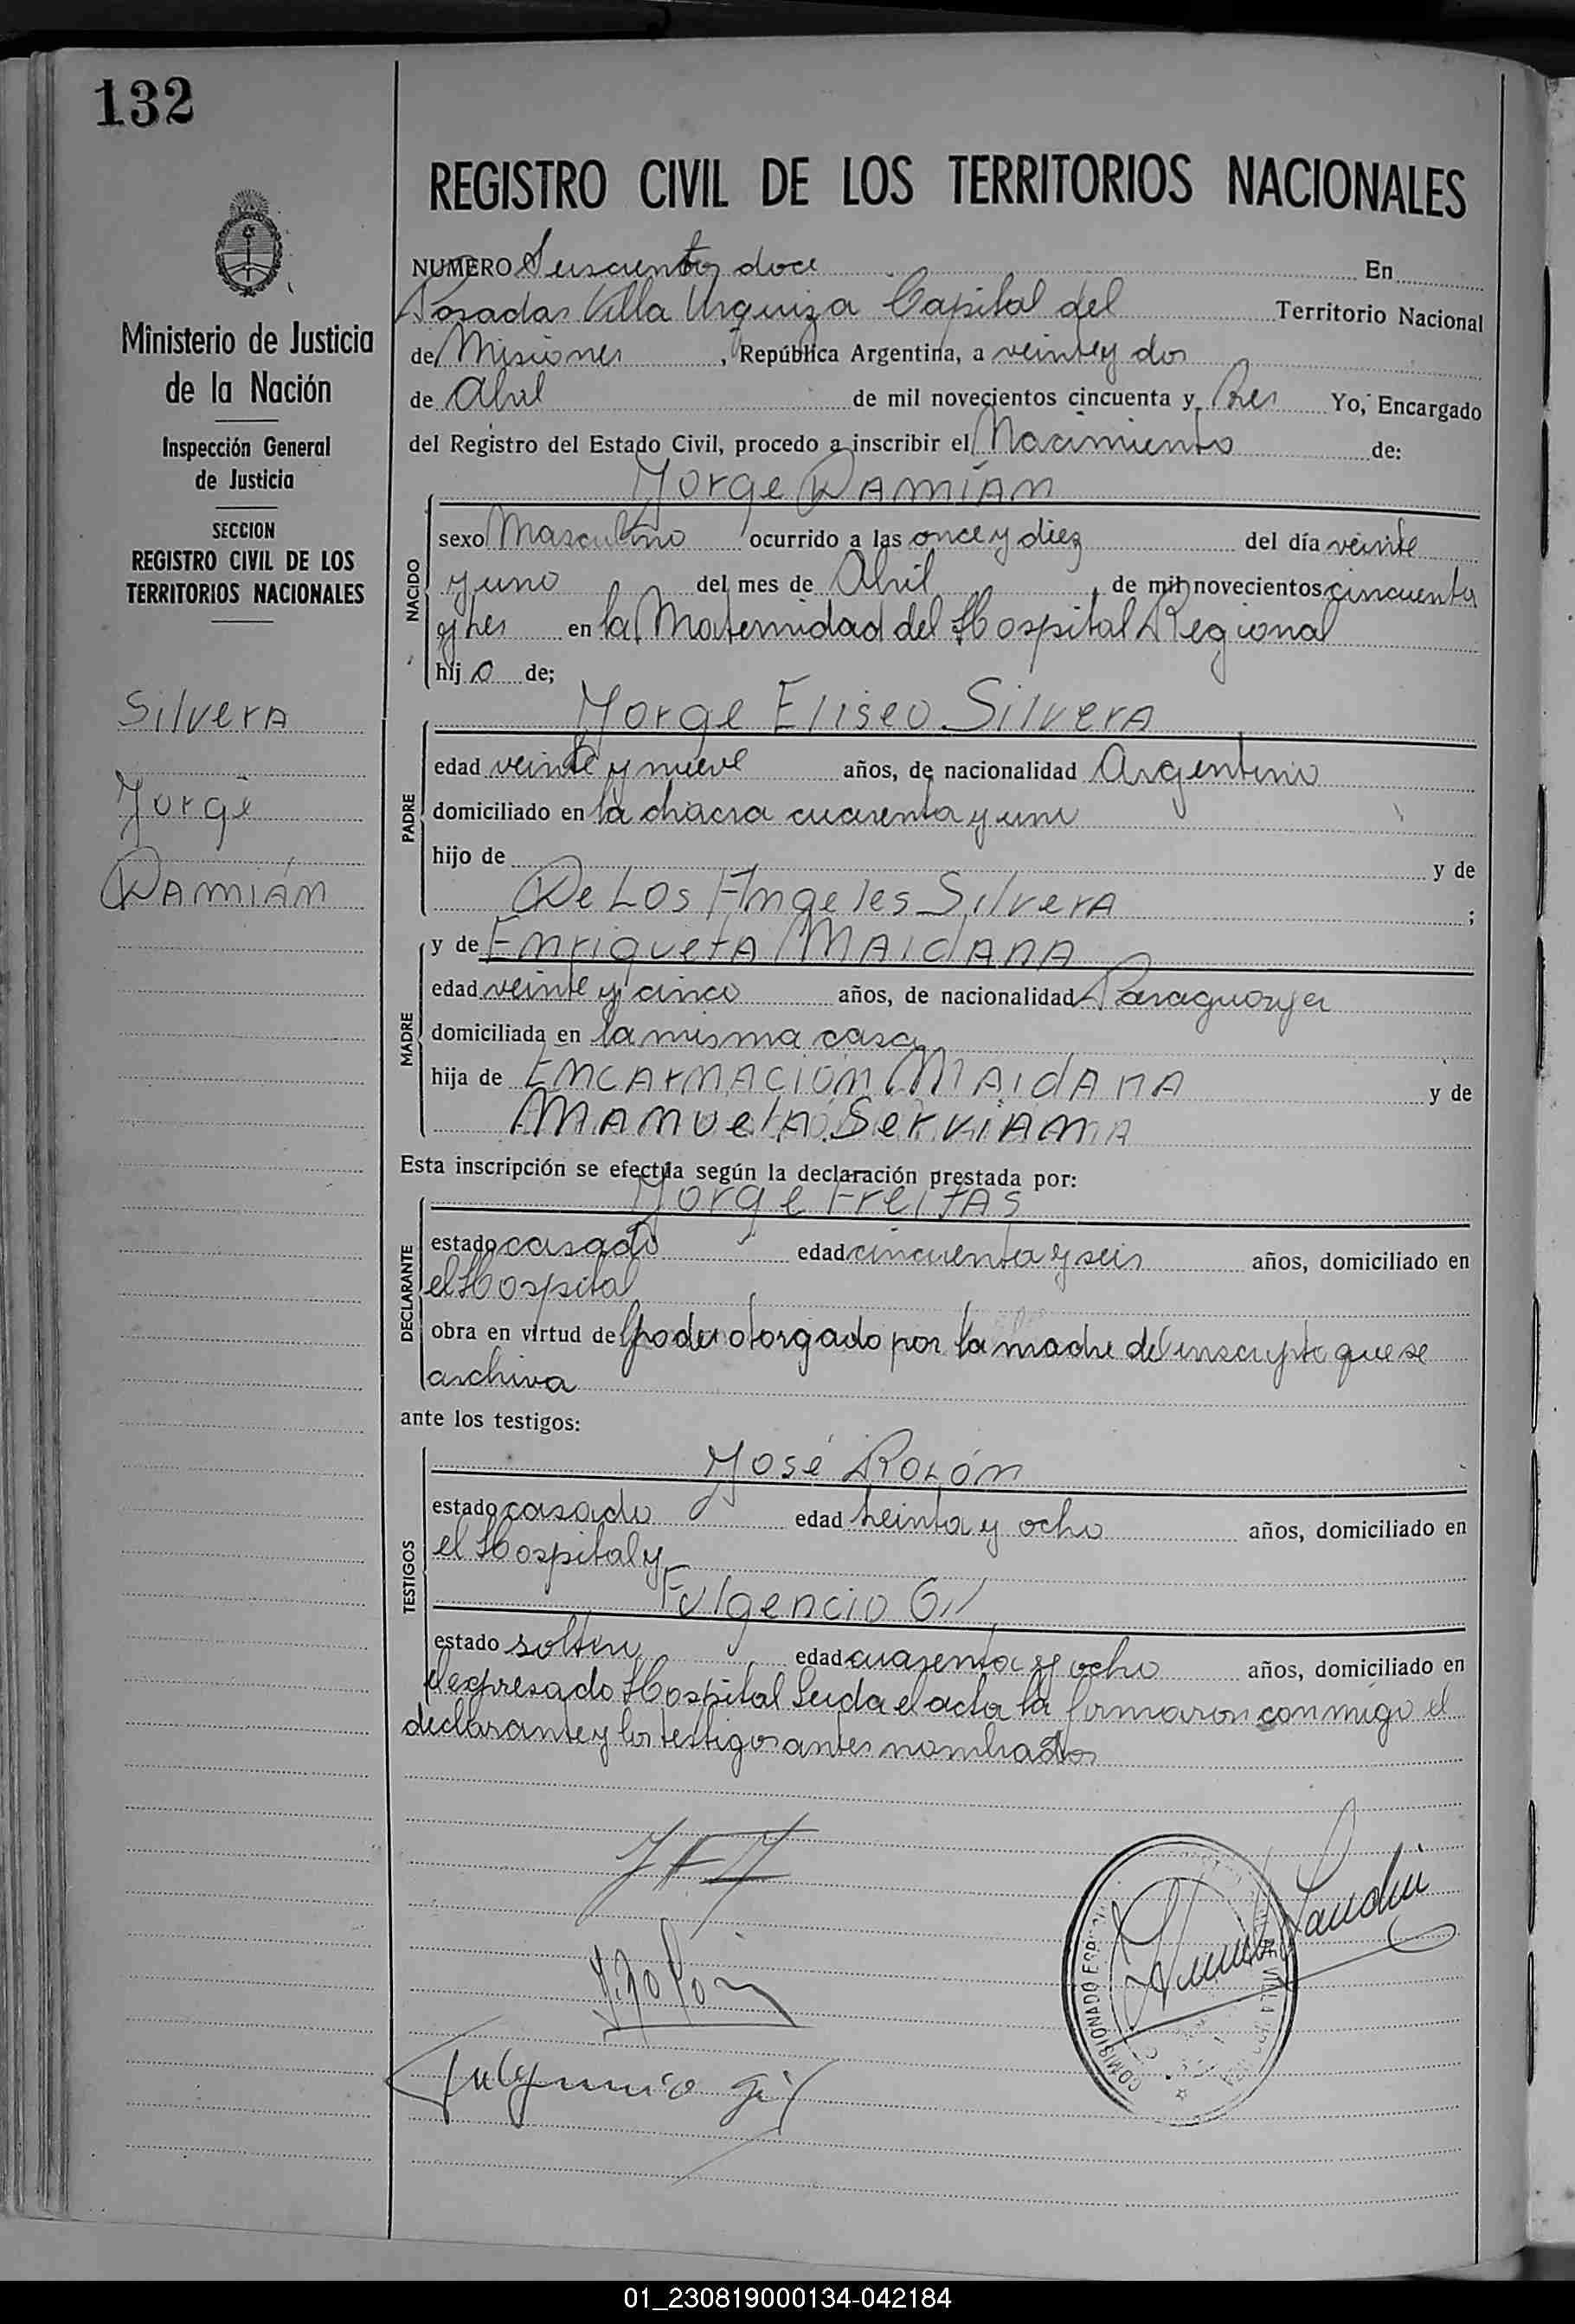 132
REGISTRO CIVIL DE LOS TERRITORIOS NACIONALES
Ministerio de Justicia
de la Nación
Inspección General
de Justicia
SECCION
REGISTRO CIVIL DE LOS
TERRITORIOS NACIONALES
Silvera
Jorge
Damián
NUMERO Seiscientos doce En
Posadas Villa Urquiza Capital del Territorio Nacional
de Misiones, República Argentina, a veinte y dos
de Abril de mil novecientos cincuenta y tres Yo, Encargado
del Registro del Estado Civil, procedo a inscribir el Nacimiento de:
Jorge Damián
NACIDO
sexo Masculino ocurrido a las once y diez del día veinte
y uno del mes de Abril, de mil novecientos cincuenta
y tres en la Maternidad del Hospital Regional
hijo de;
Jorge Eliseo Silvera
PADRE
edad veinte y nueve años, de nacionalidad Argentino
domiciliado en la chacra cuarenta y uno
hijo de y de
De Los Angeles Silvera ;
y de Enriqueta Maidana
MADRE
edad veinte y cinco años, de nacionalidad Paraguaya
domiciliada en la misma casa
hija de Encarnación Maidana y de
Manuela Serviana
Esta inscripción se efectúa según la declaración prestada por:
Jorge Freitas
DECLARANTE
estado casado edad cincuenta y seis años, domiciliado en
el Hospital
obra en virtud del poder otorgado por la madre del inscripto que se
archiva
ante los testigos:
José Rolón
TESTIGOS
estado casado edad treinta y ocho años, domiciliado en
el Hospital y
Fulgencio Gil
estado soltero edad cuarenta y ocho años, domiciliado en
el expresado Hospital Leida el acta la firmaron conmigo el
declarante y los testigos antes nombrados
J. Rolón
Fulgencio Gil
COMISIONADO
01_230819000134-042184